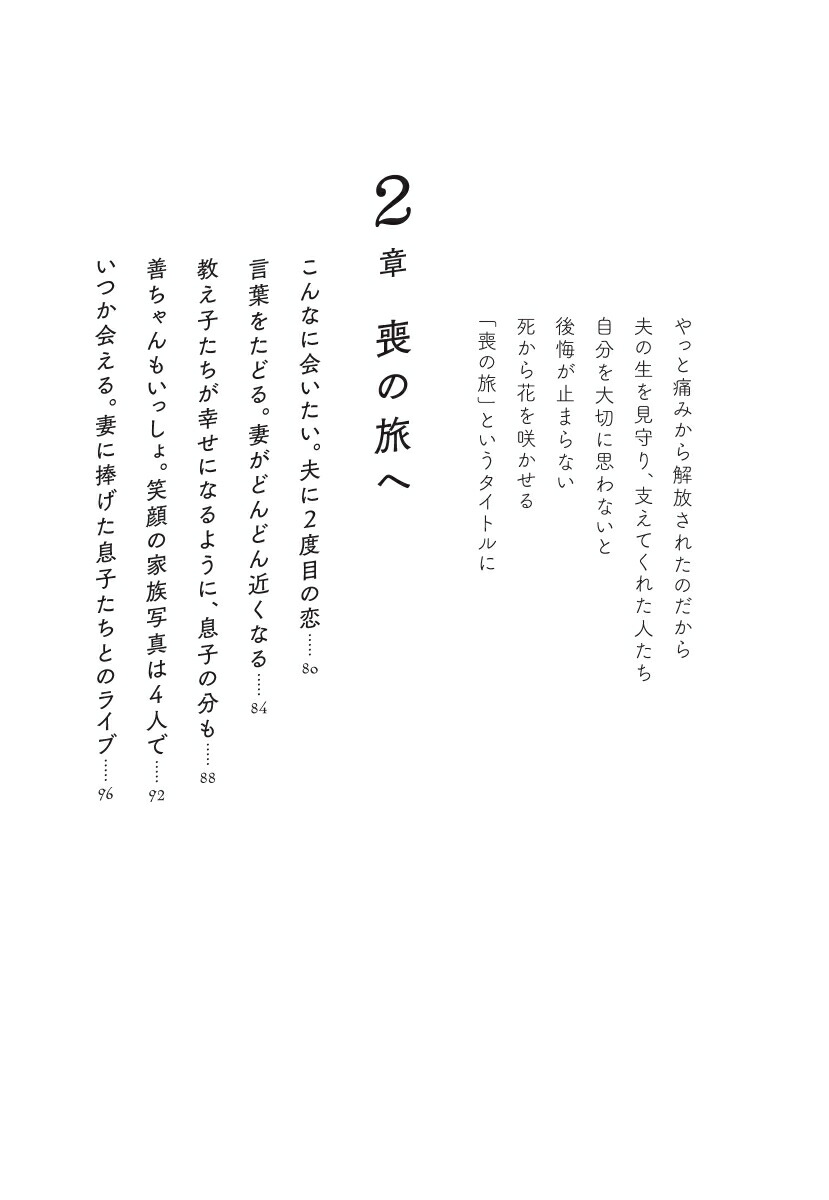 やっと痛みから解放されたのだから
夫の生を見守り、支えてくれた人たち
自分を大切に思わないと
後悔が止まらない
死から花を咲かせる
「喪の旅」というタイトルに
2章 喪の旅へ
こんなに会いたい。夫に2度目の恋……80
言葉をたどる。妻がどんどん近くなる……84
教え子たちが幸せになるように、息子の分も……88
善ちゃんもいっしょ。笑顔の家族写真は4人で……92
いつか会える。妻に捧げた息子たちとのライブ……96